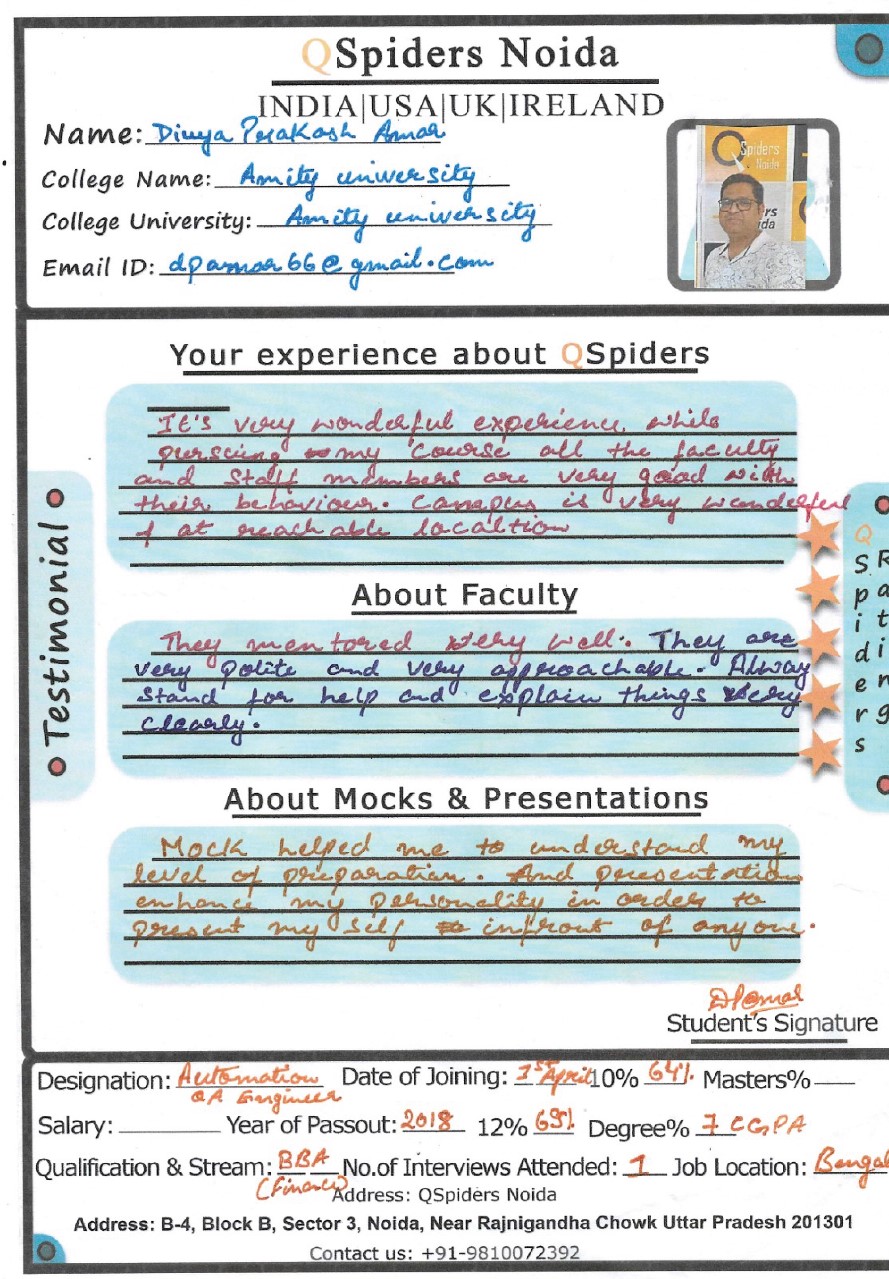 QSpiders Noida
INDIA|USA|UK|IRELAND
Name: Divya Prakash Amar
College Name: Amity university
College University: Amity university
Email ID: dpamar66@gmail.com
Q Spiders
Noida
Your experience about QSpiders
It's very wonderful experience, while
persuing my course all the faculty
and staff members are very good with
their behaviour. Campus is very wonderful
& at reachable localtion
About Faculty
They mentored very well. They are
very polite and very approachable. Alway
stand for help and explain things very
clearly.
About Mocks & Presentations
Mock helped me to understand my
level of preparation. And presentation
enhance my personality in order to
present my self infront of anyone.
Testimonial
QSpiders
Rating
DPamar
Student's Signature
Designation: Automation QA Engineer Date of Joining: 1st April 10% 64% Masters%
Salary: Year of Passout: 2018 12% 65% Degree% 7 CGPA
Qualification & Stream: BBA (Finance) No.of Interviews Attended: 1 Job Location: Bengal
Address: QSpiders Noida
Address: B-4, Block B, Sector 3, Noida, Near Rajnigandha Chowk Uttar Pradesh 201301
Contact us: +91-9810072392